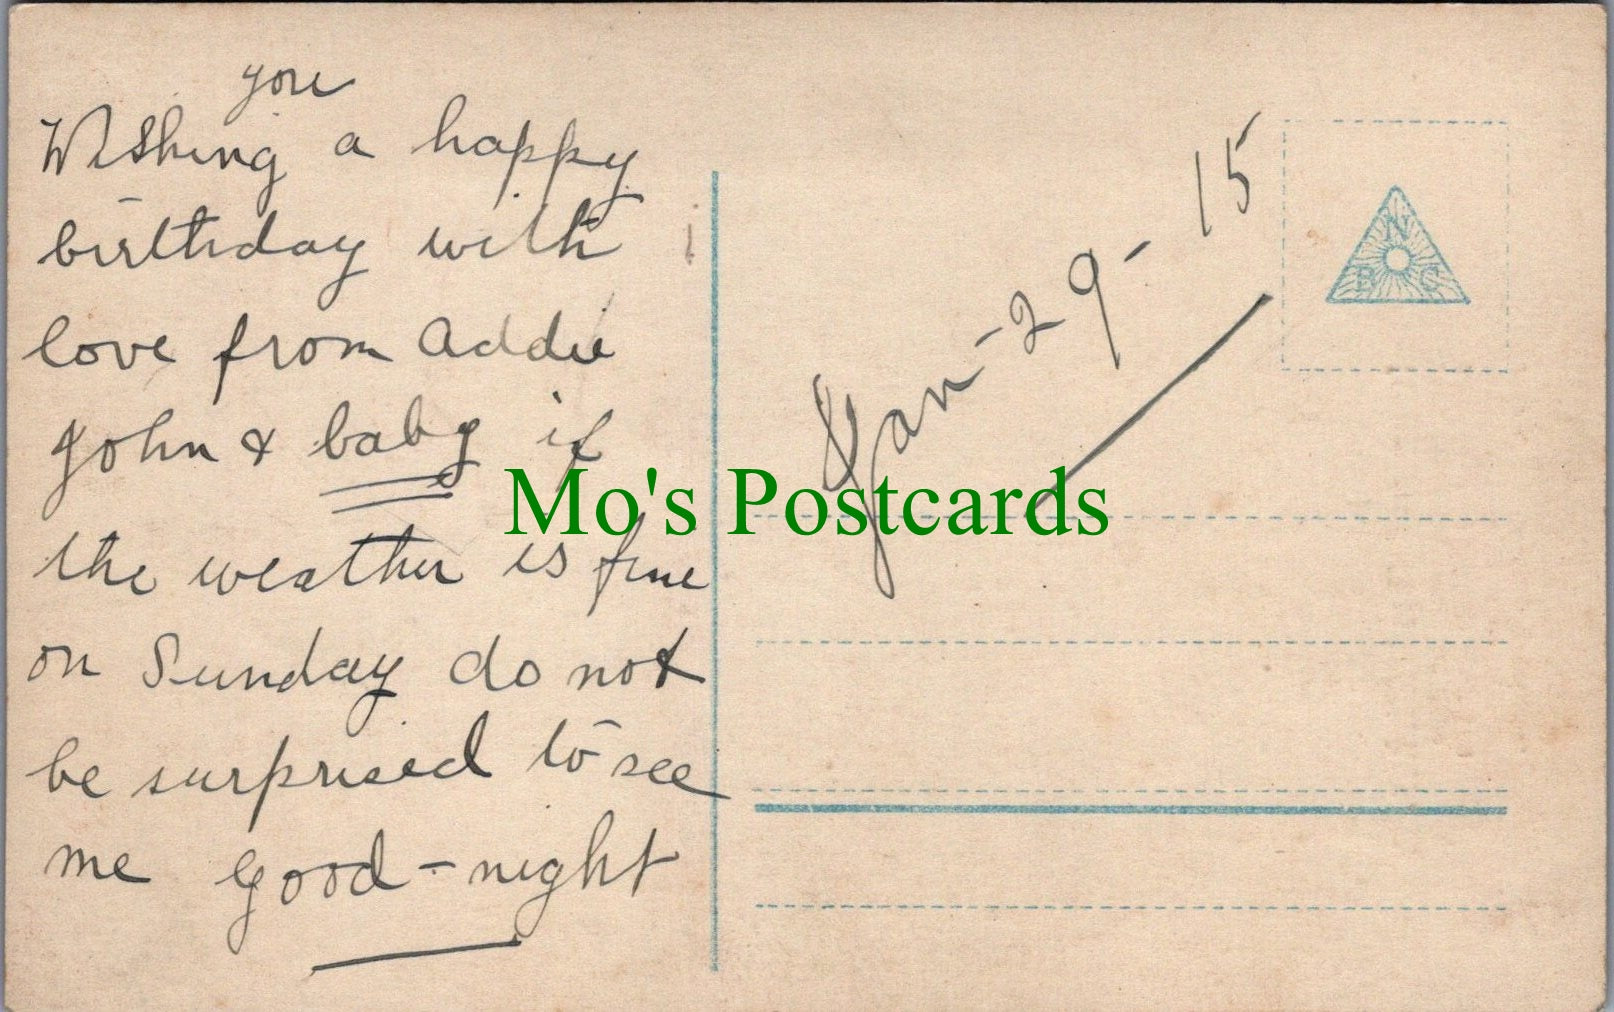 you
Wishing a happy
birthday with
love from Addie
John & baby if
the weather is fine
on Sunday do not
be surprised to see
me good-night
Jan-29-15
N
B C
Mo's Postcards